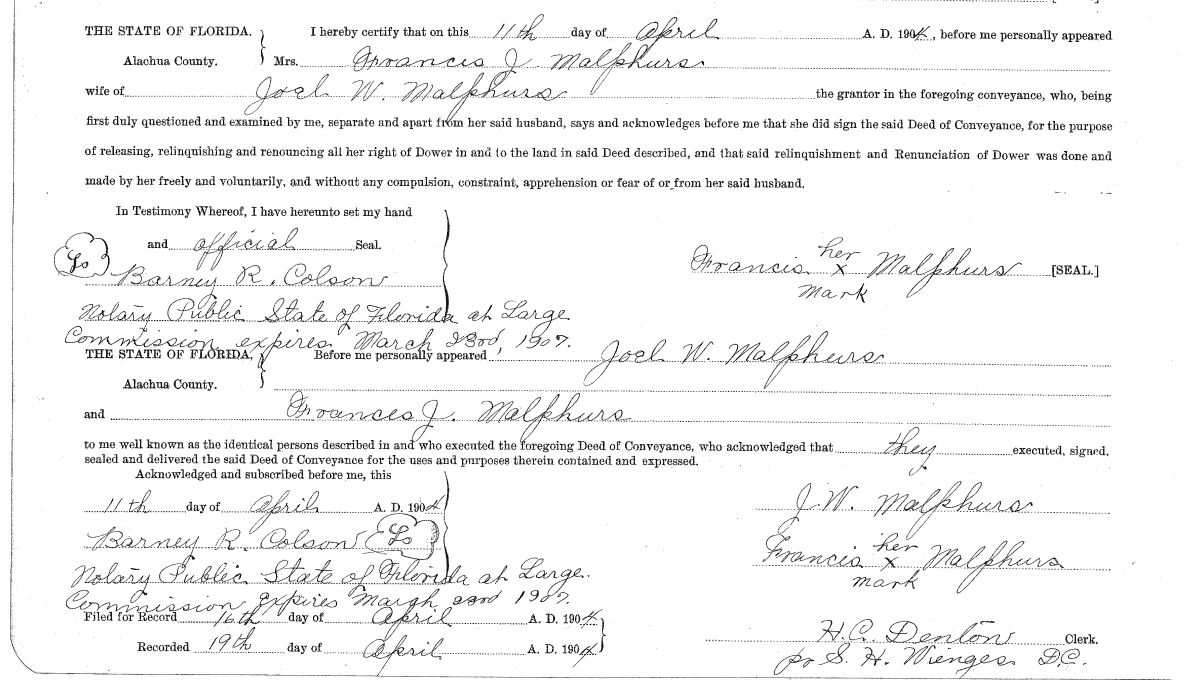 THE STATE OF FLORIDA. I hereby certify that on this 11th day of April A. D. 1904, before me personally appeared
Alachua County. Mrs. Francis J. Malphurs
wife of Joel W. Malphurs the grantor in the foregoing conveyance, who, being
first duly questioned and examined by me, separate and apart from her said husband, says and acknowledges before me that she did sign the said Deed of Conveyance, for the purpose
of releasing, relinquishing and renouncing all her right of Dower in and to the land in said Deed described, and that said relinquishment and Renunciation of Dower was done and
made by her freely and voluntarily, and without any compulsion, constraint, apprehension or fear of or from her said husband.
In Testimony Whereof, I have hereunto set my hand
and official Seal.
Ls Barney R. Colson
Francis her x mark Malphurs [SEAL.]
Notary Public State of Florida at Large
Commission expires March 23rd, 1907.
THE STATE OF FLORIDA, Before me personally appeared Joel W. Malphurs
Alachua County.
and Frances J. Malphurs
to me well known as the identical persons described in and who executed the foregoing Deed of Conveyance, who acknowledged that they executed, signed,
sealed and delivered the said Deed of Conveyance for the uses and purposes therein contained and expressed.
Acknowledged and subscribed before me, this
11th day of April A. D. 1904
J. W. Malphurs
Barney R. Colson Ls
Francis her x mark Malphurs
Notary Public State of Florida at Large.
Commission expires March 23rd 1907.
Filed for Record 16th day of April A. D. 1904
H. C. Denton Clerk.
Recorded 19th day of April A. D. 1904
pr S. H. Wienges D.C.